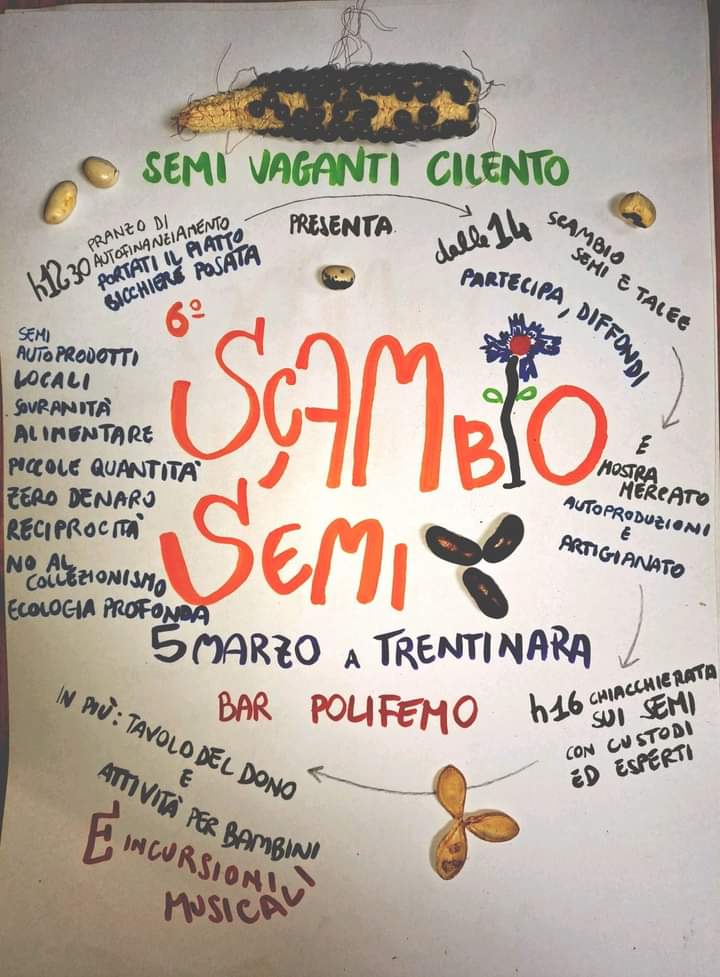 SEMI VAGANTI CILENTO
PRESENTA
h12 30
PRANZO DI
AUTOFINANZIAMENTO
PORTATI IL PIATTO
BICCHIERE POSATA
dalle 14
SCAMBIO
SEMI E TALEE
PARTECIPA, DIFFONDI
6º
SCAMBIO
SEMI
SEMI
AUTOPRODOTTI
LOCALI
SOVRANITÀ
ALIMENTARE
PICCOLE QUANTITÀ
ZERO DENARO
RECIPROCITÀ
NO AL
COLLEZIONISMO
ECOLOGIA PROFONDA
E
MOSTRA
MERCATO
AUTOPRODUZIONI
E
ARTIGIANATO
5 MARZO A TRENTINARA
BAR POLIFEMO
h16 CHIACCHIERATA
SUI SEMI
CON CUSTODI
ED ESPERTI
IN PIÙ: TAVOLO DEL DONO
E
ATTIVITÀ PER BAMBINI
E INCURSIONI
MUSICALI